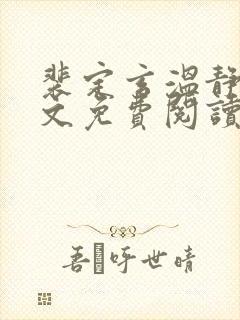 裴宗言温静
文免费阅读
吾呼世晴